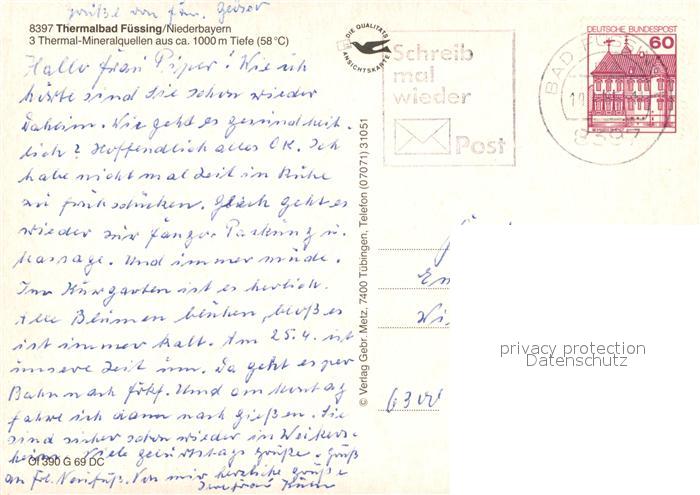 grüße von fam. Geiser
8397 Thermalbad Füssing/Niederbayern
3 Thermal-Mineralquellen aus ca. 1000 m Tiefe (58°C)
DIE QUALITÄTS
ANSICHTSKARTE
Schreib
mal
wieder
Post
DEUTSCHE BUNDESPOST
60
BAD FÜSSING
8397
Hallo Frau Piper! Wie ich
hörte sind Sie schon wieder
Daheim. Wie geht es gesundheit-
lich? Hoffendlich alles OK. Ich
habe nicht mal Zeit in Ruhe
zu frühstücken. Gleich geht es
wieder zur Fango Packung u.
Massage. Und immer müde.
Im Kurgarten ist es herlich.
Alle Blumen blühen, bloß es
ist immer kalt. Am 25.4. ist
unsere Zeit um. Da geht es per
Bahn nach Frkf. Und am Montag
fahre ich dann nach Gießen. Sie
sind sicher schon wieder in
Viele geburtstags Grüße. Gruß
an Frl. Von mir herzliche grüße
Ihre Frau
Of 390 G 69 DC
© Verlag Gebr. Metz, 7400 Tübingen, Telefon (07071) 31051
6300
privacy protection
Datenschutz